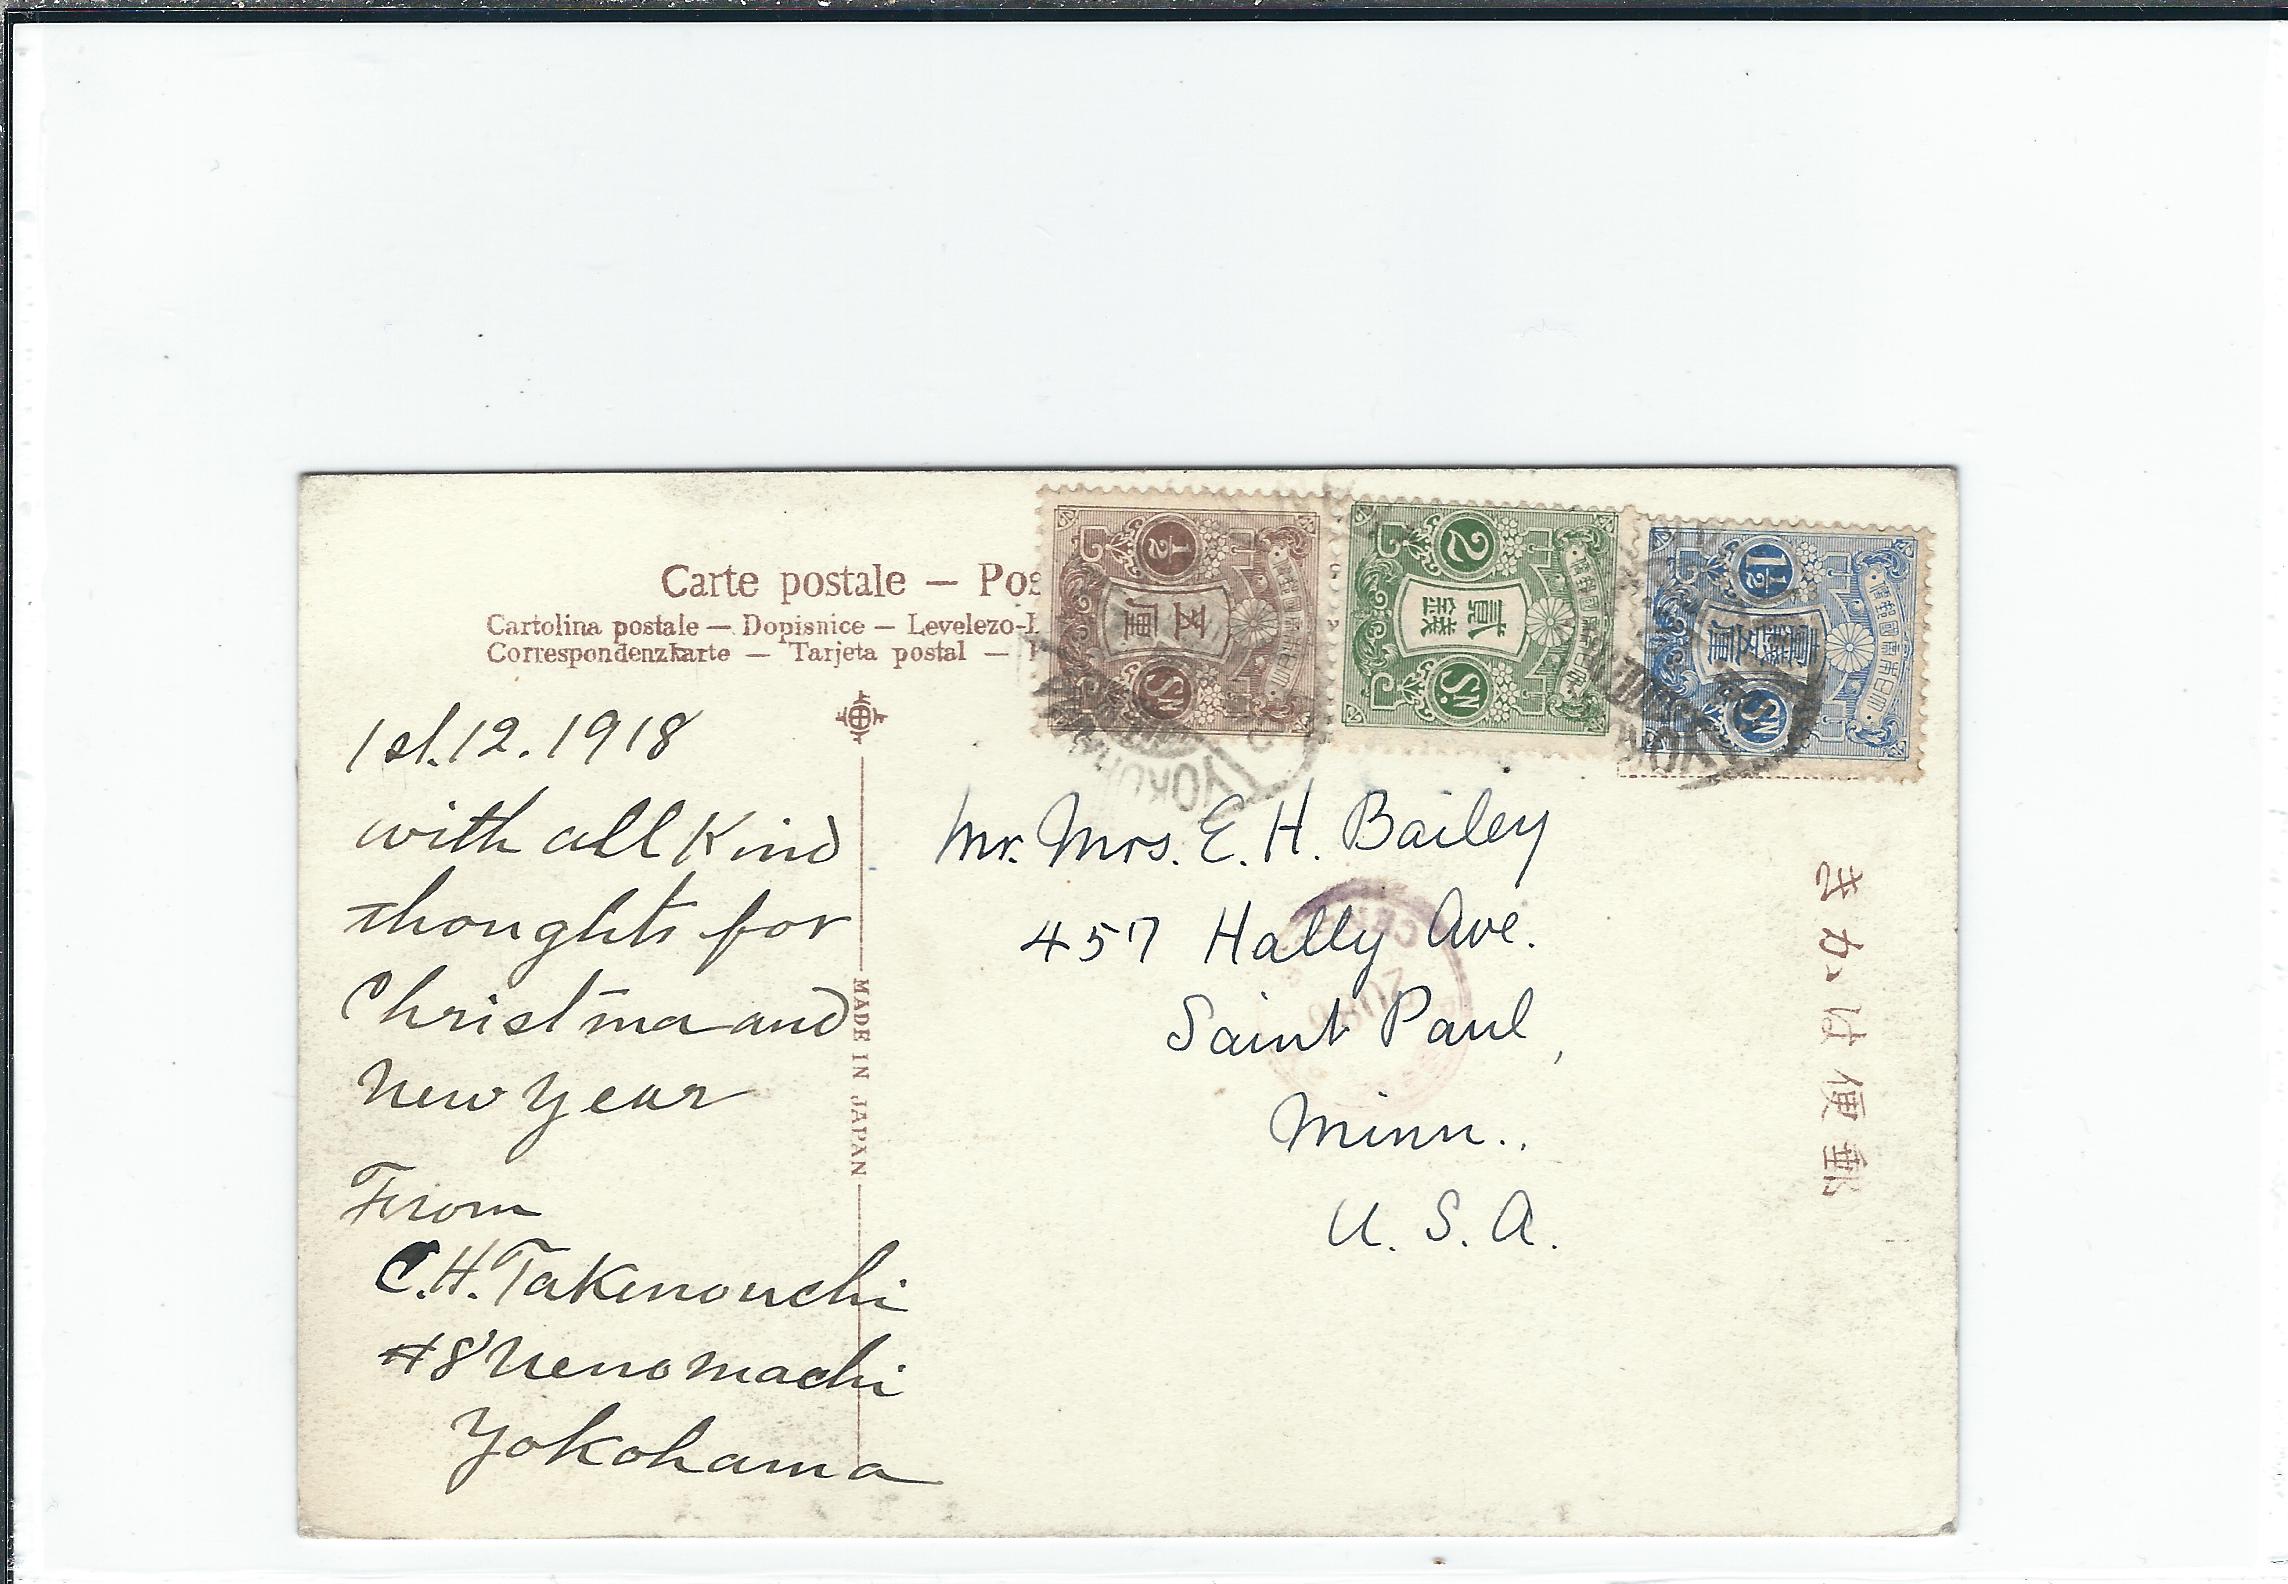 Carte postale — Pos
Cartolina postale — Dopisnice — Levelezo-L
Correspondenzkarte — Tarjeta postal —
½
五厘
Sn.
大日本帝國郵便
2
貳錢
Sn.
大日本帝國郵便
1½
壹錢五厘
Sn.
大日本帝國郵便
YOKOHAMA
YOKOHAMA
1st.12.1918
with all Kind
thoughts for
Christma and
New Year
From
C.H. Takenouchi
#8 Uenomachi
Yokohama
MADE IN JAPAN
Mr. Mrs. E. H. Bailey
457 Hally Ave.
Saint Paul,
Minn..
U. S. A.
きかは便郵